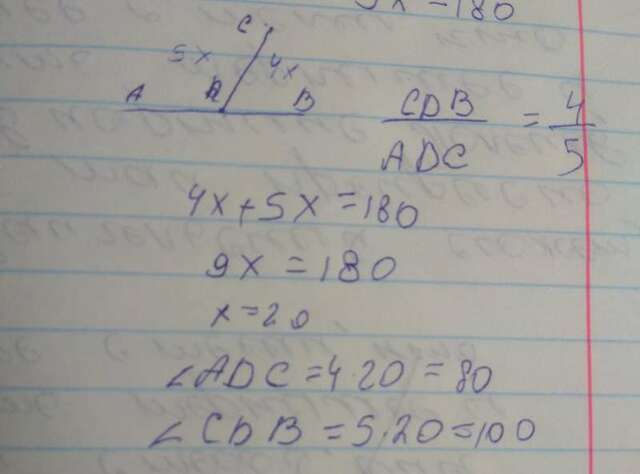 9x = 180
C
5x 4x
A D B
CDB / ADC = 4 / 5
4x + 5x = 180
9x = 180
x = 20
∠ADC = 4·20 = 80
∠CDB = 5·20 = 100